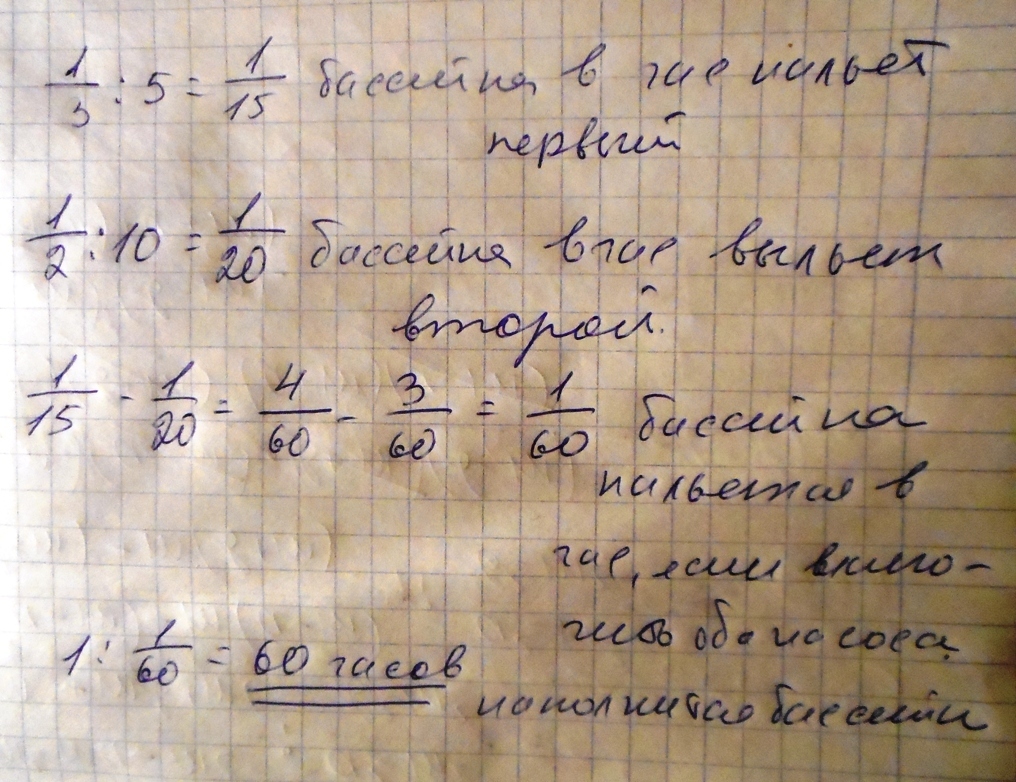 1/3 : 5 = 1/15 бассейна в час нальет
первый
1/2 : 10 = 1/20 бассейна в час выльет
второй.
1/15 - 1/20 = 4/60 - 3/60 = 1/60 бассейна
нальется в
час, если вклю-
чить оба насоса.
1 : 1/60 = 60 часов
наполнится бассейн